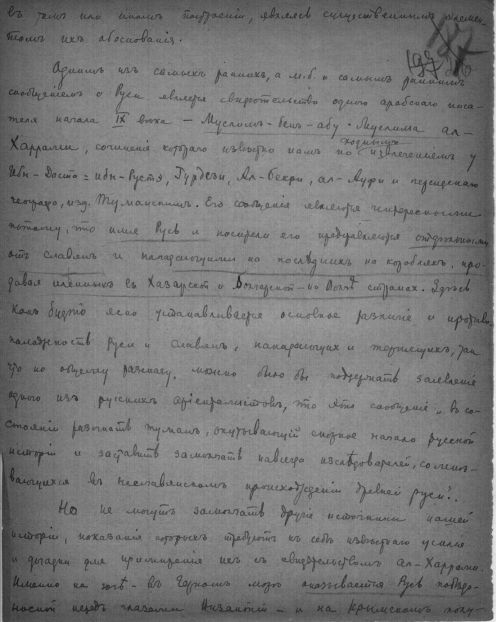 въ томъ или иномъ построеніи, являясь существеннымъ элемен-
томъ ихъ обоснованія.
Однимъ изъ самыхъ раннихъ, а м.б. и самымъ раннимъ
сообщеніемъ о Руси является свидѣтельство одного арабскаго писа-
теля начала IX вѣка — Муслимъ-бенъ-абу-Муслима ал-
Харрами, сочиненія котораго извѣстно намъ по извлеченіямъ у
Ибн-Даста = ибн-Рустя, Гурдези, Ал-Бекри, ал-Ауфи и персидскаго
географа, изд. Туманскимъ. Его сообщеніе является интереснымъ
потому, что имя Русь и носители его представляются отдѣльными
отъ славянъ и нападающими на послѣднихъ на корабляхъ, про-
давая плѣнныхъ въ Хазарской и Болгарской — по Волгѣ странахъ. Здѣсь
какъ будто ясно устанавливается основное различіе и противо-
положность Руси и славянъ, нападающихъ и
что по общему можно было бы поддержать заявленіе
одного изъ русскихъ оріенталистовъ, что это сообщеніе „въ со-
стояніи разогнать туманъ, окутывающій спорное начало русской
исторіи и заставить замолчать навсегда изслѣдователей,
въ неславянскомъ происхожденіи древней руси".
Но не могутъ замолчать другіе источники нашей
исторіи, показанія которыхъ требуютъ къ себѣ извѣстнаго усилія
и догадки для примиренія ихъ съ свидѣтельствомъ ал-Харрами.
Именно на югѣ — въ Черномъ морѣ оказывается Русь
передъ глазами Византіи — и на Крымскомъ полу-